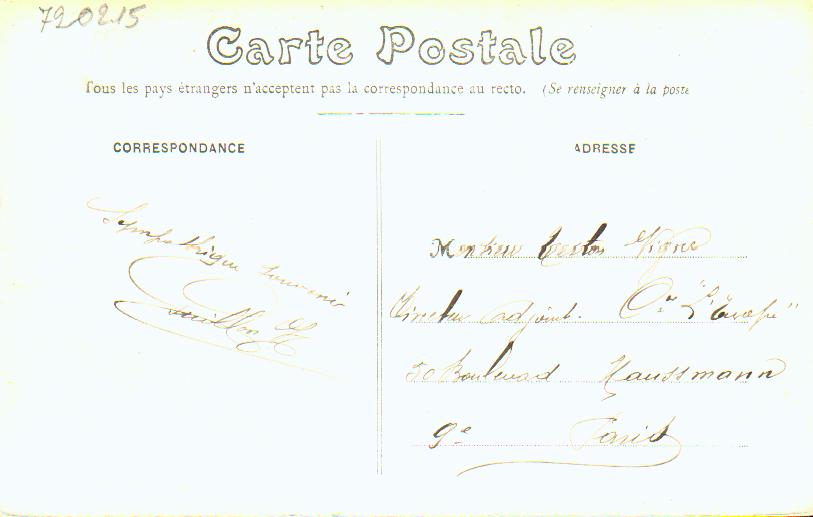 720215
Carte Postale
Tous les pays étrangers n'acceptent pas la correspondance au recto. (Se renseigner à la poste
CORRESPONDANCE
Sympathique souvenir
ADRESSE
Monsieur Nestor
Directeur adjoint. Cie "L'Europe"
50 Boulevard Haussmann
9e Paris